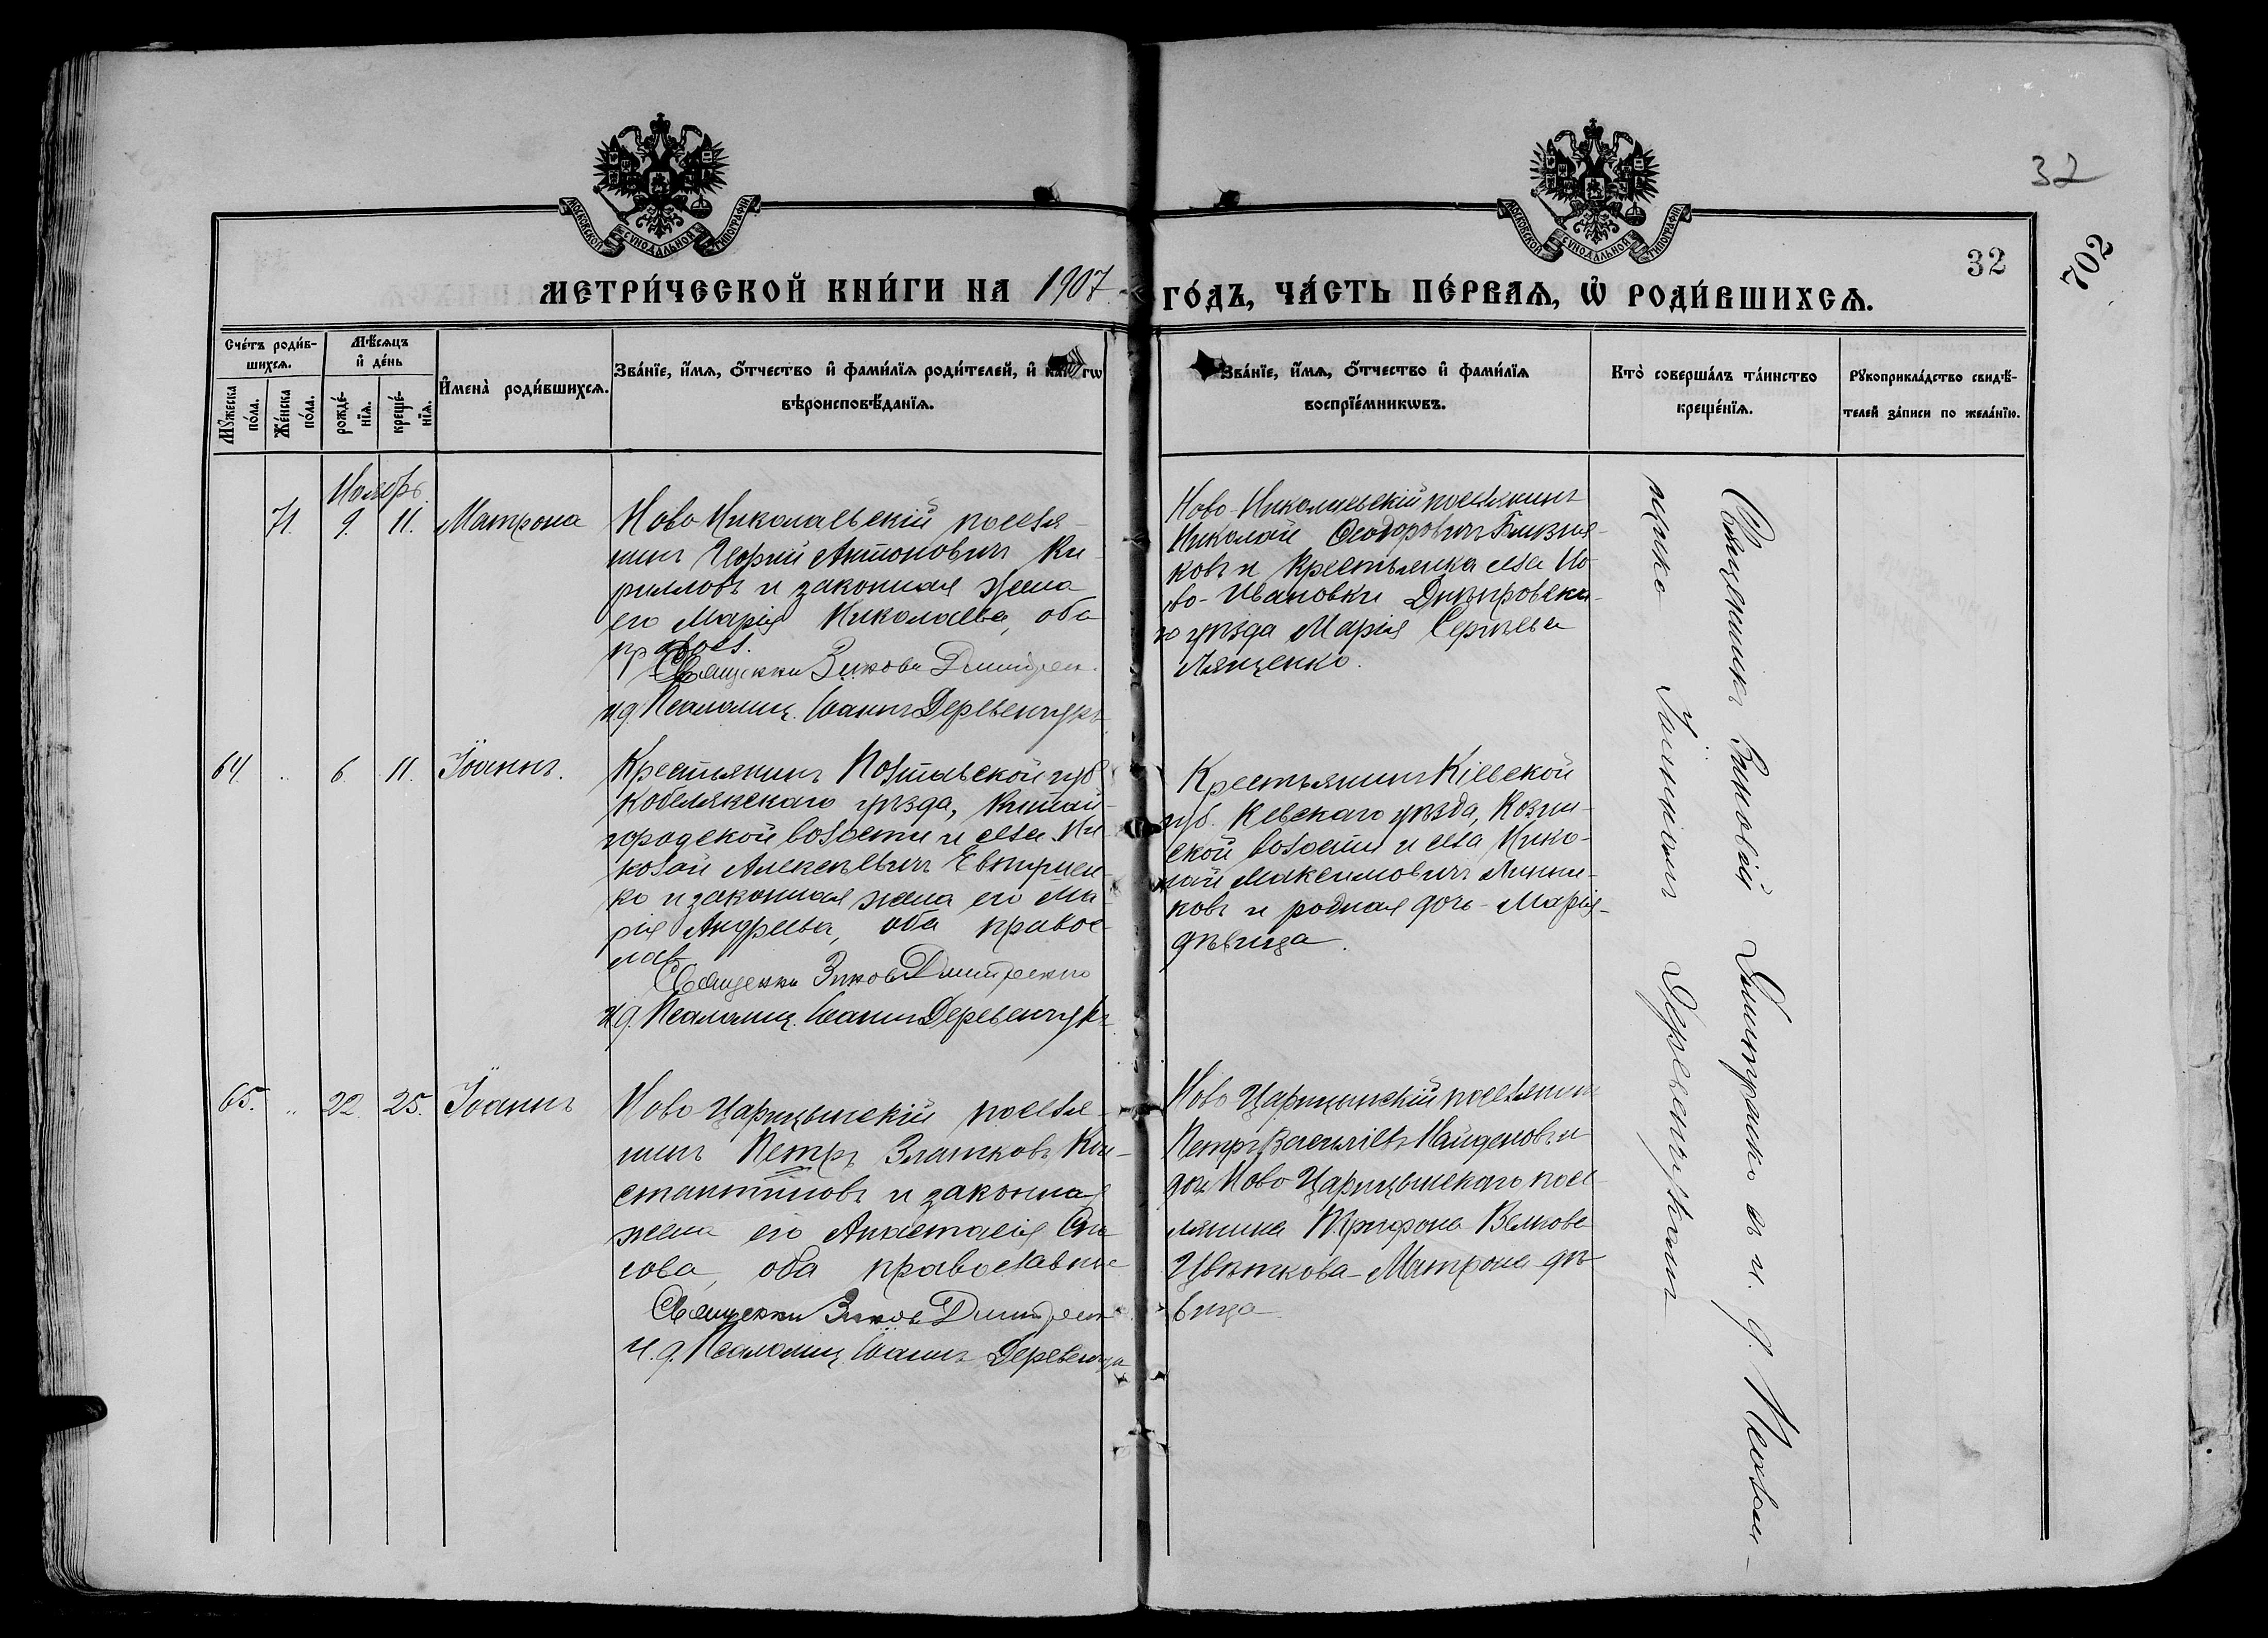 32
32
702
МОСКОВСКОЙ СУНОДАЛЬНОЙ ТИПОГРАФІИ
МОСКОВСКОЙ СУНОДАЛЬНОЙ ТИПОГРАФІИ
МЕТРИ́ЧЕСКОЙ КНИ́ГИ НА 1907 ГО́ДЪ, ЧА́СТЬ ПЕ́РВАѦ, Ѡ҆ РОДИ́ВШИХСѦ.
Сче́тъ роди́в-
шихсѧ.
Мꙋжеска по́ла.
Же́нска по́ла.
Мѣ́сѧцъ
и҆ де́нь
рожде́-
нїѧ.
креще́-
нїѧ.
И҆мена̀ роди́вшихсѧ.
Зва́нїе, и҆́мѧ, ѻ҆́тчество и҆ фами́лїѧ роди́телей, и҆
вѣроисповѣ́данїѧ.
Зва́нїе, и҆́мѧ, ѻ҆́тчество и҆ фами́лїѧ
воспрїе́мникѡвъ.
Кто̀ соверша́лъ та́инство
креще́нїѧ.
Рꙋкоприкла́дство свидѣ́-
телей за́писи по жела́нїю.
Ноябрь.
71. 9. 11. Матрона
Ново Николаевскій поселя-
нинъ Георгій Антоновичъ Ки-
рилловъ и законная жена
его Марія Николаева, оба
правосл.
Священникъ Зиновій Дмитрен.
и. д. Псаломщ. Іоаннъ Деревенчукъ
Ново-Николаевскій поселянинъ
Николай Ѳеодоровичъ Близня-
ковъ и крестьянка села Но-
во-Ивановки Днѣпровска-
го уѣзда Марія Сергѣева
Лященко.
64. " 6 11. Іоаннъ.
Крестьянинъ Полтавской губ
Кобелякскаго уѣзда, Китай-
городской волости и села Ни-
колай Алексѣевичъ Евтушен-
ко и законная жена его Ма-
рія Андреева, оба правос-
лав
Священникъ Зиновій Дмитренко
и. д. Псаломщ. Іоаннъ Деревенчукъ
Крестьянинъ Кіевской
губ. Кіевскаго уѣзда,
ской волости и села Нико-
лай Максимовичъ
ковъ и родная дочь - Марія-
дѣвица.
65. " 22. 25. Іоаннъ
Ново Царицынскій поселя-
нинъ Петръ Златковъ Кон-
стантиновъ и законная
жена его Анастасія
оба православные
Священникъ Зиновій Дмитрен
И. д. Псаломщ. Іоаннъ Деревенчук
Ново Царицынскій поселянинъ
Петръ Василіевъ Найденовъ и
дочь Ново Царицынскаго посе-
лянина Трифона Велкова
Цвѣткова - Матрона дѣ-
вица
Священникъ Зиновій Дмитренко съ и. д. Псалом-
щика Іоанномъ Деревенчукомъ